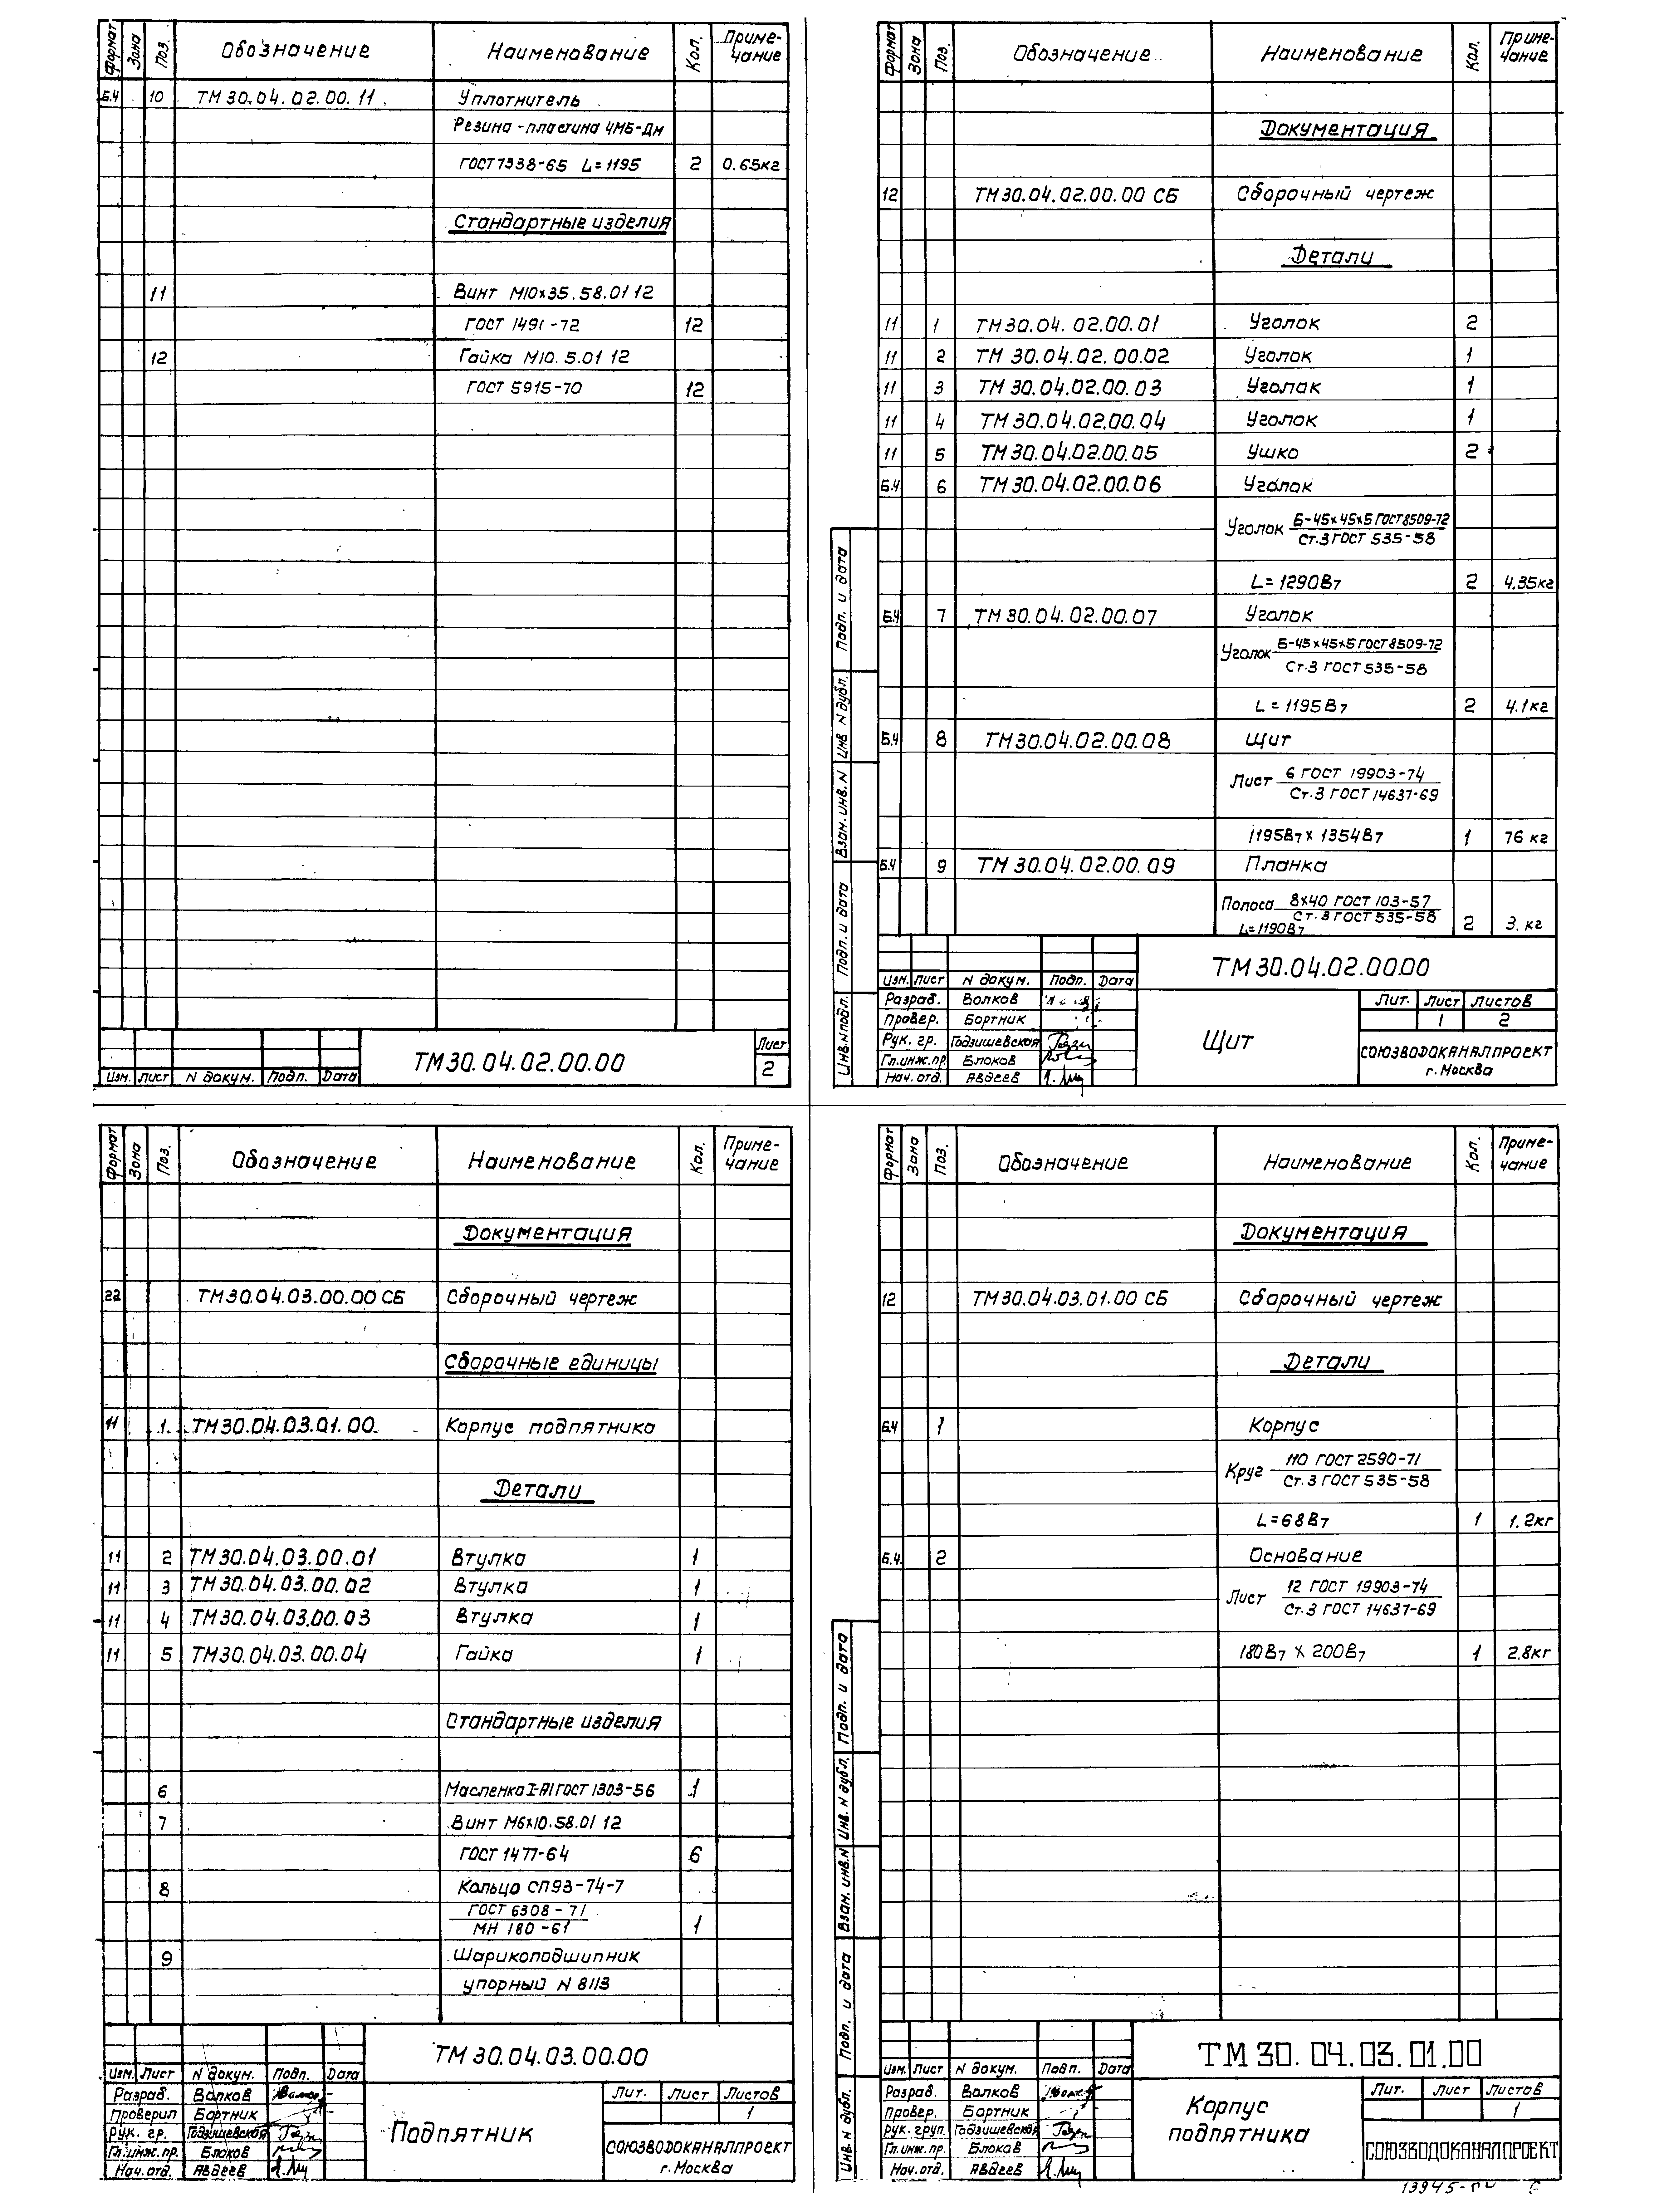 Формат Зона Поз. Обозначение Наименование Кол. Приме-чание
Б.4 10 ТМ 30.04.02.00.11 Уплотнитель
Резина-пластина 4МБ-Дм
ГОСТ 7338-65 L=1195 2 0.65кг
Стандартные изделия
11 Винт М10х35.58.01 12
ГОСТ 1491-72 12
12 Гайка М10.5.01 12
ГОСТ 5915-70 12
Изм. Лист N докум. Подп. Дата
ТМ 30.04.02.00.00
Лист
2
Формат Зона Поз. Обозначение Наименование Кол. Приме-чание
Документация
12 ТМ 30.04.02.00.00 СБ Сборочный чертеж
Детали
11 1 ТМ 30.04.02.00.01 Уголок 2
11 2 ТМ 30.04.02.00.02 Уголок 1
11 3 ТМ 30.04.02.00.03 Уголок 1
11 4 ТМ 30.04.02.00.04 Уголок 1
11 5 ТМ 30.04.02.00.05 Ушко 2
Б.4 6 ТМ 30.04.02.00.06 Уголок
Уголок Б-45х45х5 ГОСТ 8509-72
Ст.3 ГОСТ 535-58
L=1290В7 2 4.35кг
Б.4 7 ТМ 30.04.02.00.07 Уголок
Уголок Б-45х45х5 ГОСТ 8509-72
Ст.3 ГОСТ 535-58
L=1195В7 2 4.1кг
Б.4 8 ТМ 30.04.02.00.08 Щит
Лист 6 ГОСТ 19903-74
Ст.3 ГОСТ 14637-69
1195В7 х 1354В7 1 76 кг
Б.4 9 ТМ 30.04.02.00.09 Планка
Полоса 8х40 ГОСТ 103-57
Ст.3 ГОСТ 535-58
L=1190В7 2 3. кг
Подп. и дата
Инв N дубл.
Взам. инв. N
Подп. и дата
Инв. N подл.
Изм. Лист N докум. Подп. Дата
Разраб. Волков
Провер. Бортник
Рук. гр. Годзишевская
Гл.инж.пр. Блоков
Нач. отд. Авдеев
ТМ 30.04.02.00.00
Щит
Лит. Лист Листов
1 2
СОЮЗВОДОКАНАЛПРОЕКТ
г. Москва
Формат Зона Поз. Обозначение Наименование Кол. Приме-чание
Документация
22 ТМ 30.04.03.00.00 СБ Сборочный чертеж
Сборочные единицы
11 1. ТМ 30.04.03.01.00. Корпус подпятника
Детали
11 2 ТМ 30.04.03.00.01 Втулка 1
11 3 ТМ 30.04.03.00.02 Втулка 1
11 4 ТМ 30.04.03.00.03 Втулка 1
11 5 ТМ 30.04.03.00.04 Гайка 1
Стандартные изделия
6 Масленка I-А1 ГОСТ 1303-56 1
7 Винт М6х10.58.01 12
ГОСТ 1477-64 6
8 Кольцо СП93-74-7
ГОСТ 6308-71
МН 180-61 1
9 Шарикоподшипник
упорный N 8113
Изм. Лист N докум. Подп. Дата
Разраб. Волков
Проверил Бортник
Рук. гр. Годзишевская
Гл.инж.пр. Блоков
Нач. отд. Авдеев
ТМ 30.04.03.00.00
Подпятник
Лит. Лист Листов
1
СОЮЗВОДОКАНАЛПРОЕКТ
г. Москва
Формат Зона Поз. Обозначение Наименование Кол. Приме-чание
Документация
12 ТМ 30.04.03.01.00 СБ Сборочный чертеж
Детали
Б.4 1 Корпус
Круг 110 ГОСТ 2590-71
Ст.3 ГОСТ 535-58
L=68В7 1 1.2кг
Б.4. 2 Основание
Лист 12 ГОСТ 19903-74
Ст.3 ГОСТ 14637-69
180В7 х 200В7 1 2.8кг
Подп. и дата
Инв. N дубл.
Взам. инв. N
Подп. и дата
Инв. N дубл.
Изм. Лист N докум. Подп. Дата
Разраб. Волков
Провер. Бортник
Рук. груп. Годзишевская
Гл.инж.пр. Блоков
Нач. отд. Авдеев
ТМ 30.04.03.01.00
Корпус
подпятника
Лит. Лист Листов
1
СОЮЗВОДОКАНАЛПРОЕКТ